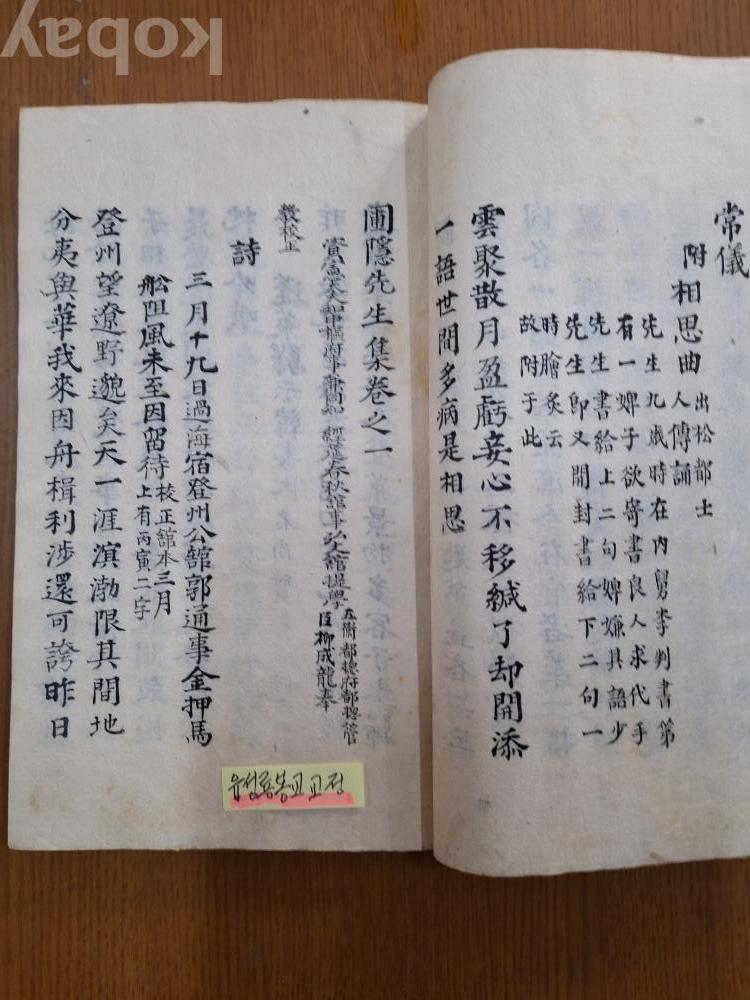 常儀
附相思曲 出松都士
人傳誦
先生九歲時在内舅李判書第
有一婢子欲寄書良人求代手
先生書給上二句婢嫌其語少
先生即又開封書給下二句一
時膾炙云
故附于此
雲聚散月盈虧妾心不移緘了却開添
一語世間多病是相思
圃隱先生集卷之一
資憲大夫知中樞府事兼同知 經筵春秋舘事弘文舘提學 五衛都摠府都摠管
臣柳成龍奉
敎校上
詩
三月十九日過海宿登州公舘郭通事金押馬
舩阻風未至因留待 校正舘本三月
上有丙寅二字
登州望遼野邈矣天一涯溟渤限其間地
分夷與華我來因舟楫利涉還可誇昨日
유성룡봉교교정
kobay